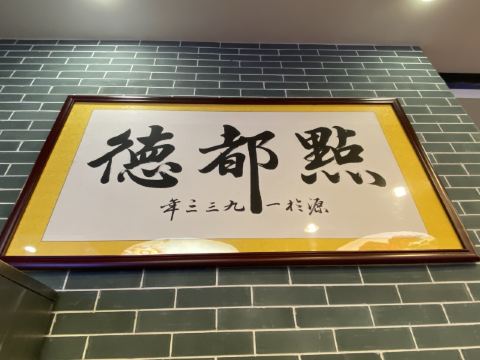 點都德
源於一九三三年